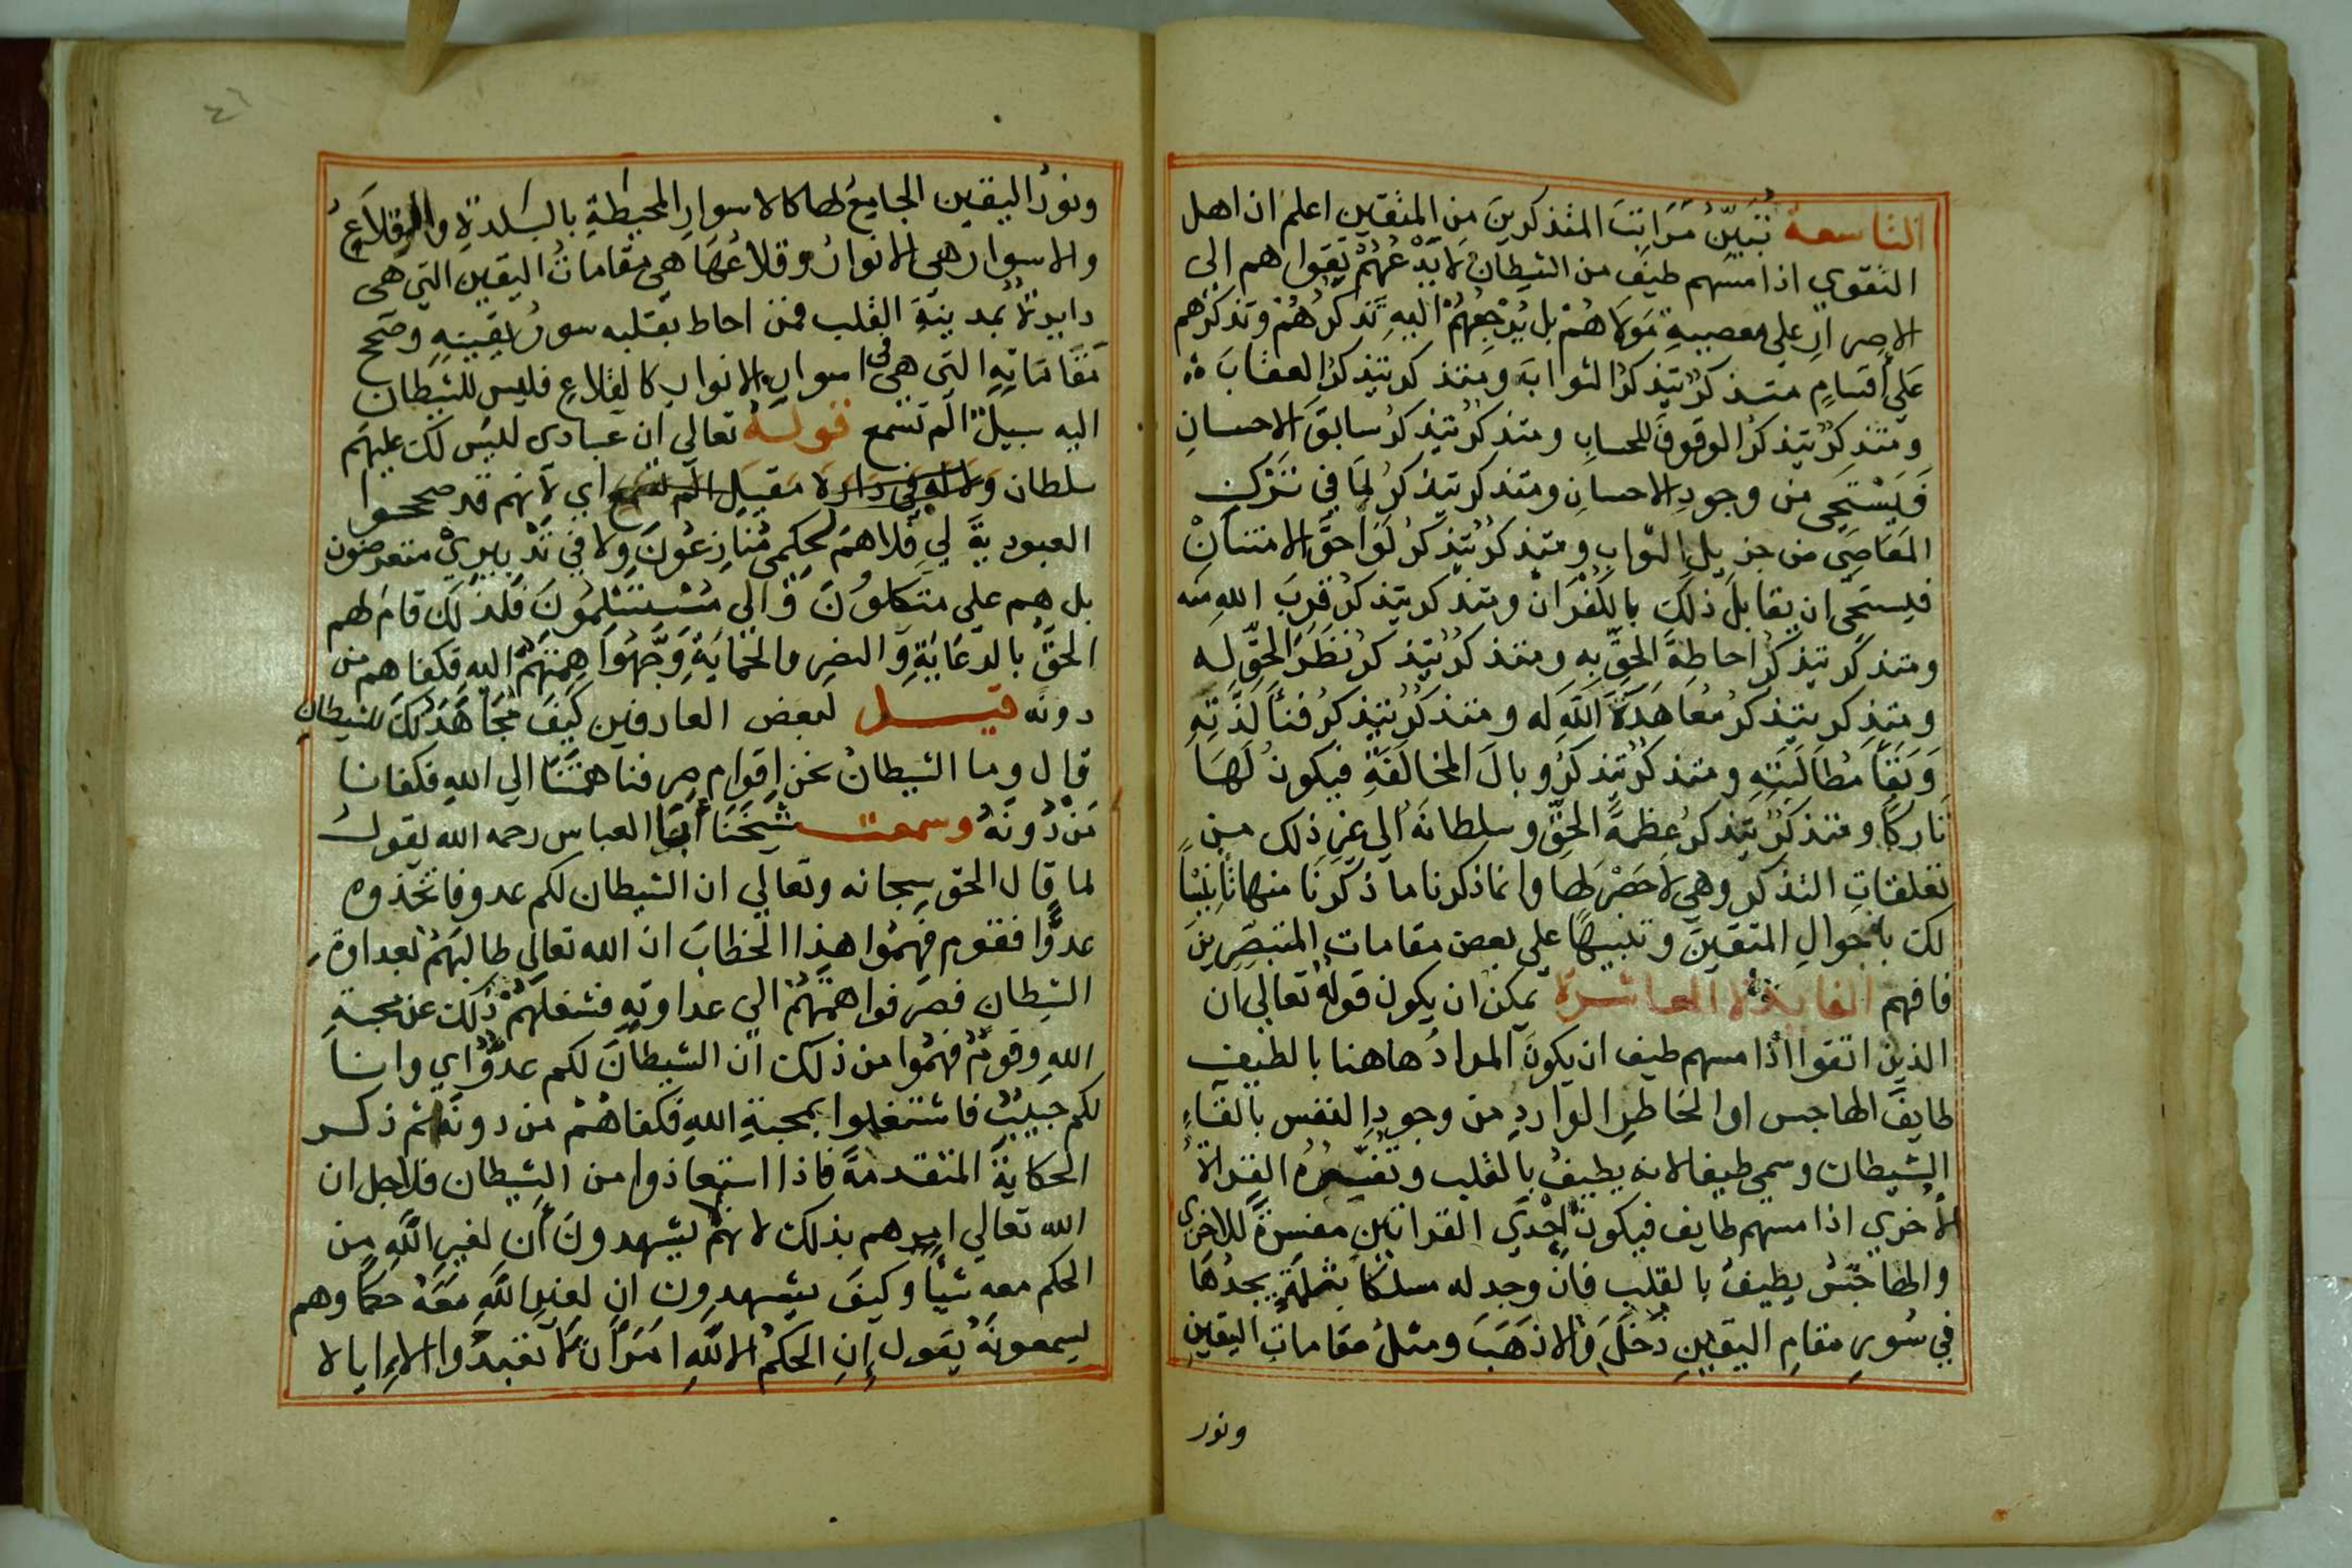 التاسعة تبين مراتب المتذكرين من المتقين اعلم ان اهل
التقوي اذا مسهم طيف من الشيطان لا يدعهم تقواهم الي
الاصرار علي معصية مولاهم بل يرجعهم اليه تذكرهم وتذكرهم
علي أقسام متذكر يتذكر الثواب ومتذكر يتذكر العقاب
ومتذكر يتذكر الوقوف للحساب ومتذكر يتذكر سابق الاحسان
فيستحي من وجود الاحسان ومتذكر يتذكر لما في ترك
المعاصي من جزيل الثواب ومتذكر يتذكر لواحق الامتنان
فيستحي ان يقابل ذلك بالكفران ومتذكر يتذكر قرب الله منه
ومتذكر يتذكر احاطة الحق به ومتذكر يتذكر نظر الحق له
ومتذكر يتذكر معاهدة الله له ومتذكر يتذكر فنا لذته
وبقا مطالبته ومتذكر يتذكر وبال المخالفة فيكون لها
تاركا ومتذكر يتذكر عظمة الحق وسلطانه الي غير ذلك من
تعلقات التذكر وهي لا حصر لها وانما ذكرنا ما ذكرنا منها تانيسا
لك باحوال المتقين وتنبيها علي بعض مقامات المتبصرين
فافهم الفايدة العاشرة يمكن ان يكون قوله تعالي ان
الذين اتقوا اذا مسهم طيف ان يكون المراد هاهنا بالطيف
طايف الهاجس او الخاطر الوارد من وجود النفس بالقاء
الشيطان وسمي طيفا لانه يطيف بالقلب وتفسره القراة
الأخري اذا مسهم طايف فيكون احدي القراتين مفسرة للاخري
والهاجس يطيف بالقلب فان وجد له مسلكا بثلمة يجدها
في سور مقام اليقين دخل والا ذهب ومثل مقامات اليقين
ونور
ونور اليقين الجامع لها كالاسوار المحيطة بالبلدة والقلاع
والاسوار هي الانوار وقلاعها هي مقامات اليقين التي هي
دايرة بمدينة القلب فمن احاط بقلبه سور يقينه وصحح
مقاماته التي هي في اسوار الانوار كالقلاع فليس للشيطان
اليه سبيل الم تسمع قوله تعالي ان عبادي ليس لك عليهم
سلطان ولا له في داره مقيل الم تسمع اي لانهم قد صححوا
العبودية لي فلا هم لحكمي منازعون ولا في تدبيري متعرضون
بل هم علي متكلون والي مستسلمون فلذلك قام لهم
الحق بالرعاية والنصر والحماية وجهوا همتهم اليه فكفاهم من
دونه قيل لبعض العارفين كيف مجاهدتك للشيطان
قال وما الشيطان نحن اقوام صرفنا همتنا الي الله فكفانا
من دونه وسمعت شيخنا أبا العباس رحمه الله يقول
لما قال الحق سبحانه وتعالي ان الشيطان لكم عدو فاتخذوه
عدوا فقوم فهموا هذا الخطاب ان الله تعالي طالبهم بعداوة
الشيطان فصرفوا همتهم الي عداوته فشغلهم ذلك عن محبة
الله وقوم فهموا من ذلك ان الشيطان لكم عدو اي وانا
لكم حبيب فاشتغلوا بمحبة الله فكفاهم من دونه ثم ذكر
الحكاية المتقدمة فاذا استعاذوا من الشيطان فلاجل ان
الله تعالي امرهم بذلك لا انهم يشهدون أن لغير الله من
الحكم معه شيا وكيف يشهدون ان لغير الله معه حكما وهم
يسمعونه يقول إن الحكم الا لله امر أن لا تعبدوا الا إياه لا